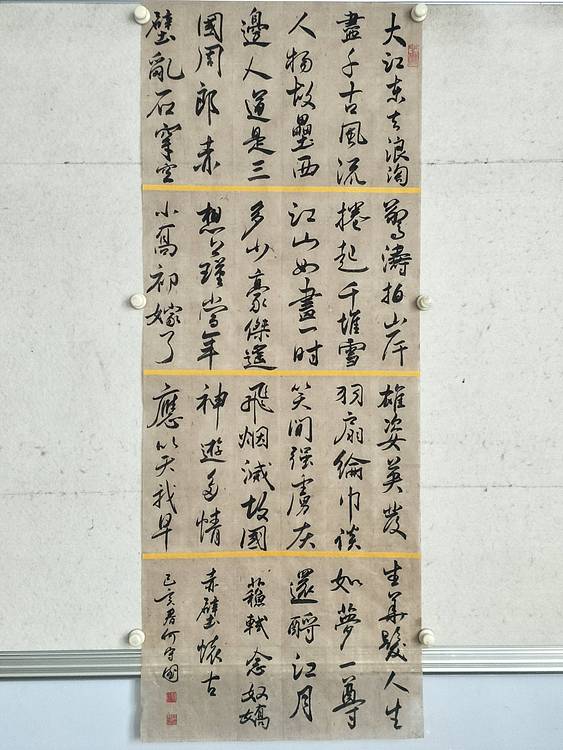 大江東去浪淘
盡千古風流
人物故壘西
邊人道是三
國周郎赤
壁亂石穿空
驚濤拍岸
捲起千堆雪
江山如畫一時
多少豪傑遙
想公瑾當年
小喬初嫁了
雄姿英發
羽扇綸巾談
笑間强虜灰
飛烟滅故國
神遊多情
應笑我早
生華髮人生
如夢一尊
還酹江月
蘇軾念奴嬌
赤壁懷古
己亥春何守國